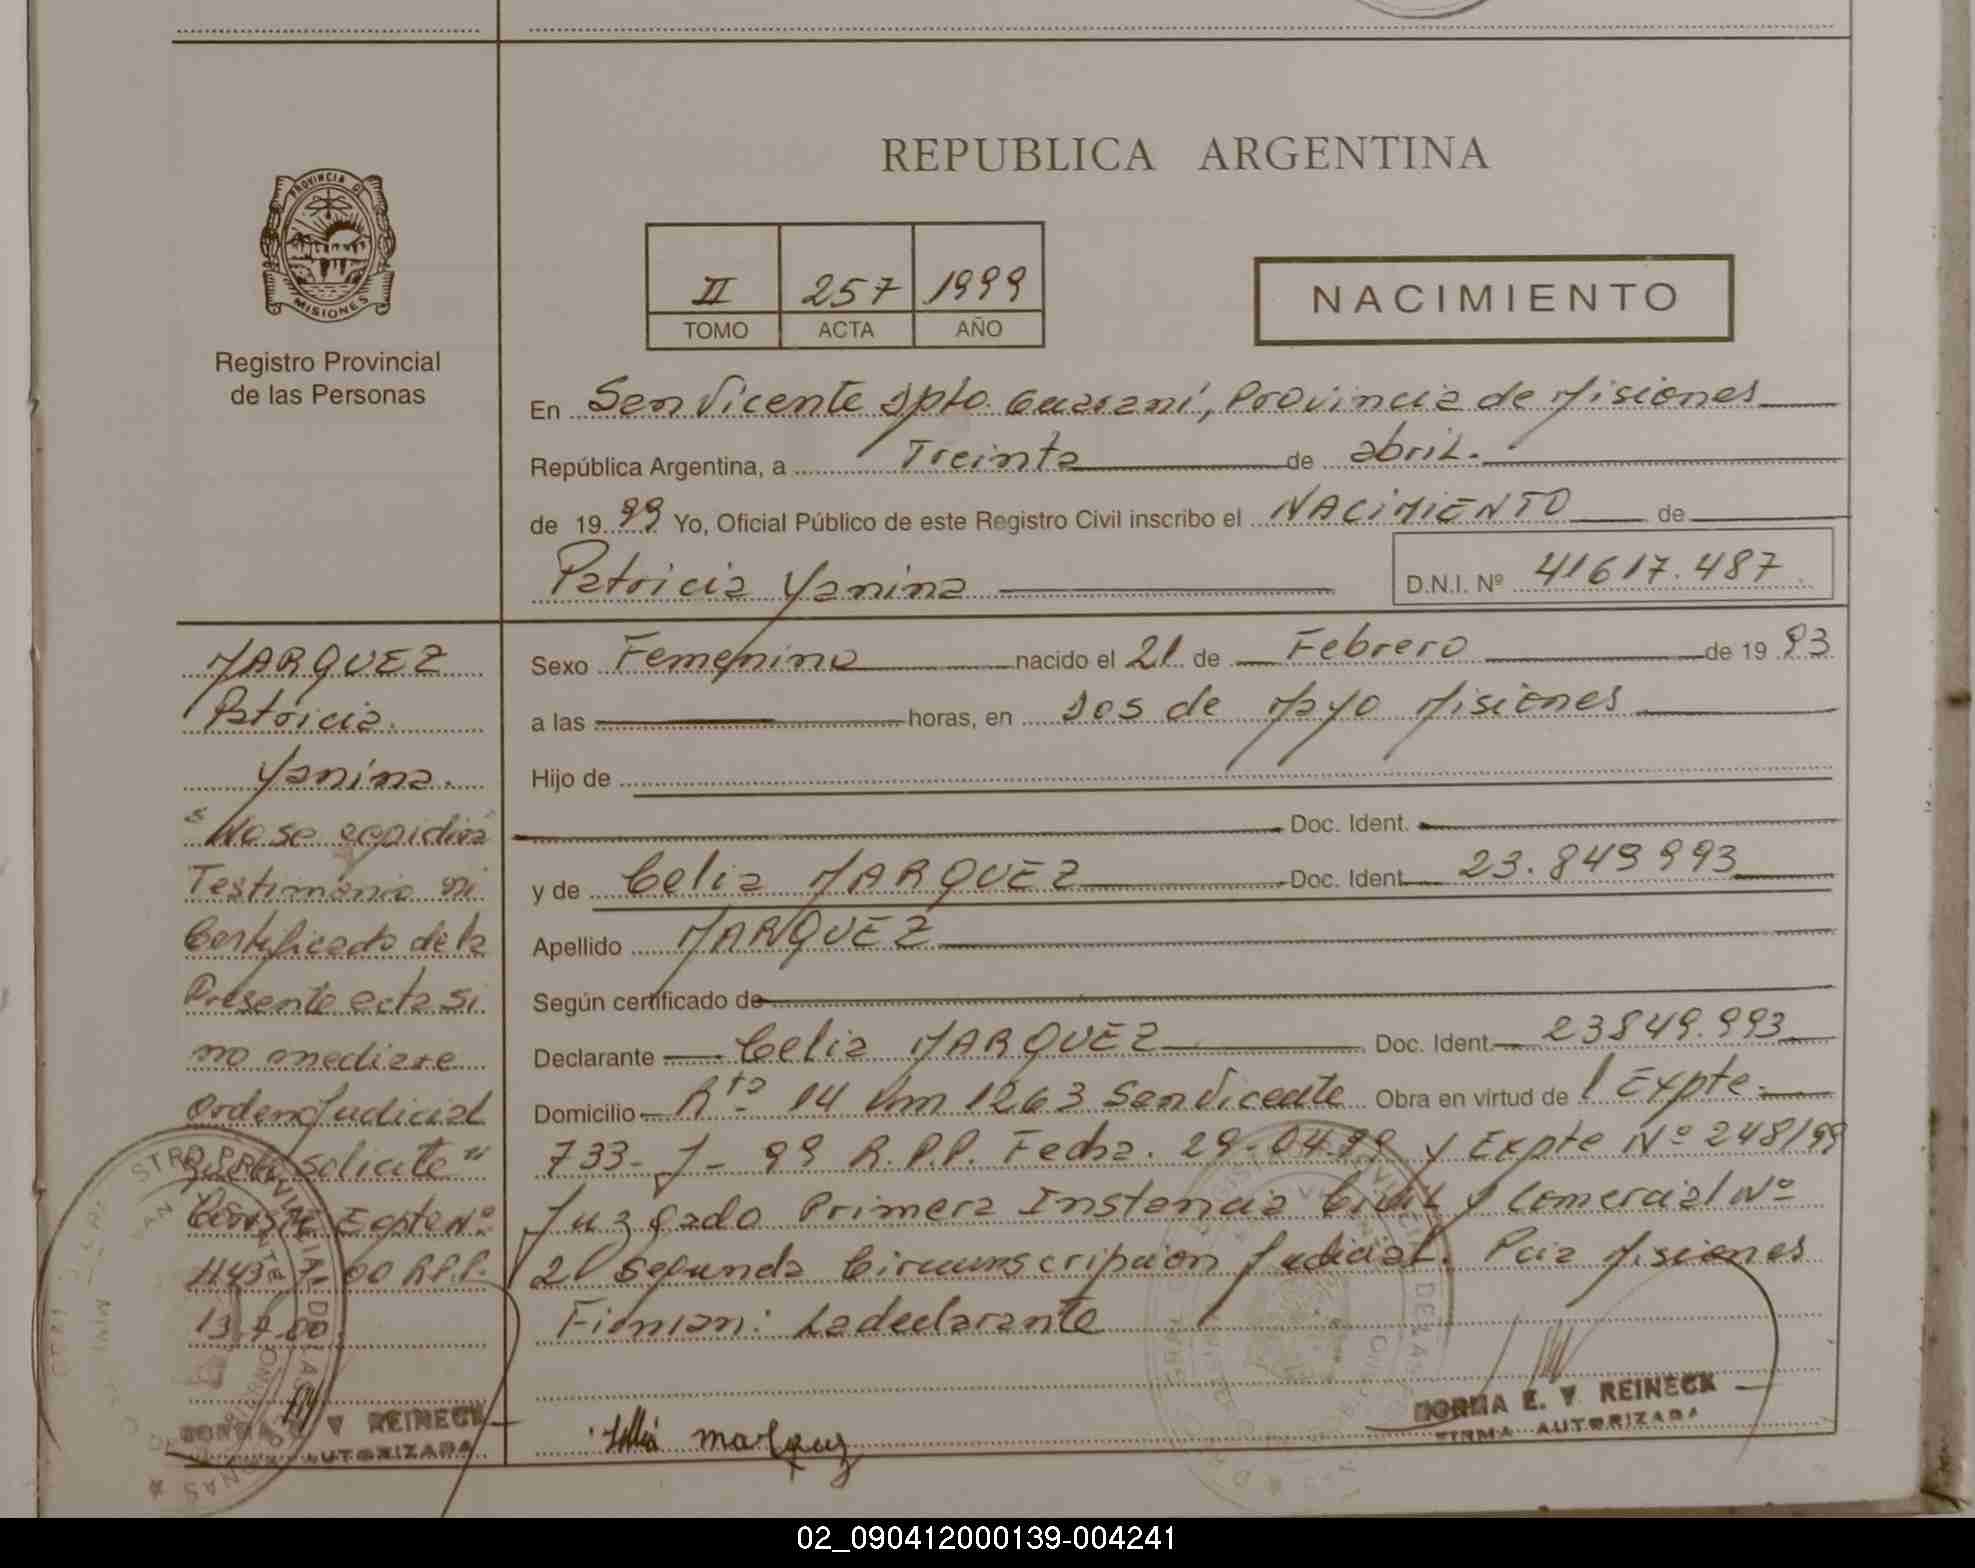 REPUBLICA ARGENTINA
PROVINCIA DE
MISIONES
Registro Provincial
de las Personas
II 257 1999
TOMO ACTA AÑO
NACIMIENTO
En San Vicente Dpto. Guarani, Provincia de Misiones
República Argentina, a Treinta de abril.
de 1999 Yo, Oficial Público de este Registro Civil inscribo el NACIMIENTO de
Patricia Yanina D.N.I. Nº 41617.487
MARQUEZ
Patricia.
Yanina.
"No se expidira
Testimonio ni
Certificado de la
Presente acta si
no mediare
Orden Judicial
que lo solicite"
Expte Nº
00 R.P.P.
Sexo Femenino nacido el 21 de Febrero de 1993
a las horas, en Dos de Mayo Misiones
Hijo de
Doc. Ident.
y de Celia MARQUEZ Doc. Ident. 23.849993
Apellido MARQUEZ
Según certificado de
Declarante Celia MARQUEZ Doc. Ident. 23849.993
Domicilio Rta 14 Km 1263 San Vicente Obra en virtud de Expte.
733- J- 99 R.P.P. Fecha. 29-04.99 y Expte Nº 248/99
Juzgado Primera Instancia Civil y Comercial Nº
2 Segunda Circunscripcion Judicial. Misiones
Firman: La declarante
marquez
NORMA E. V. REINECK
FIRMA AUTORIZADA
V REINECK
AUTORIZADA
02_090412000139-004241